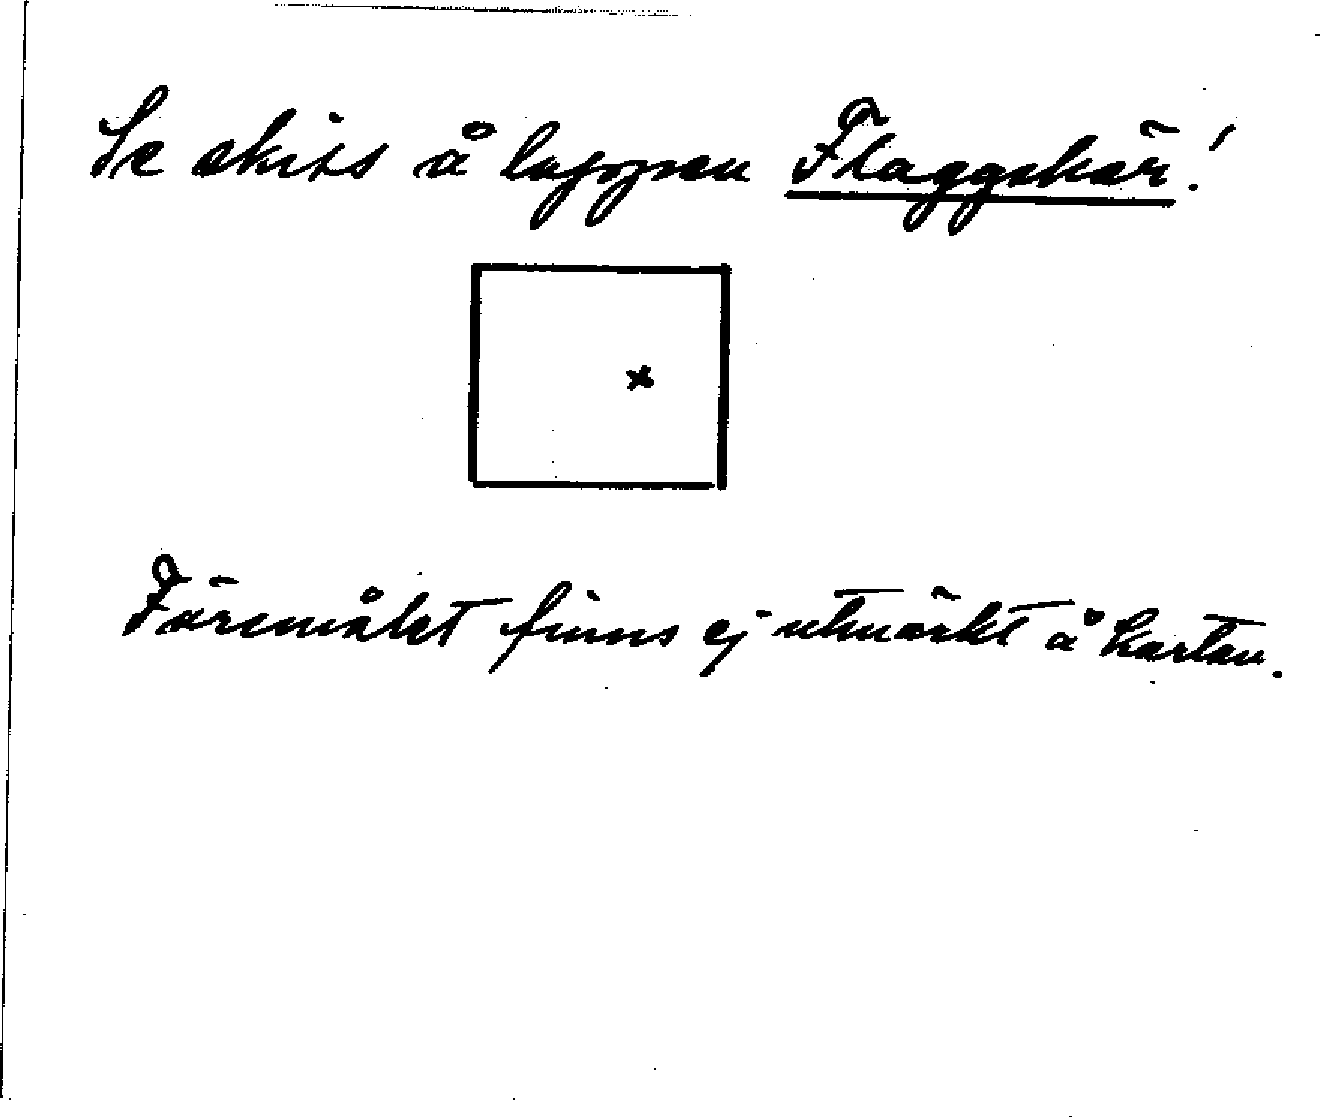 Se skiss å lappen Flaggskär!
Föremålet finns ej utmärkt å kartan.